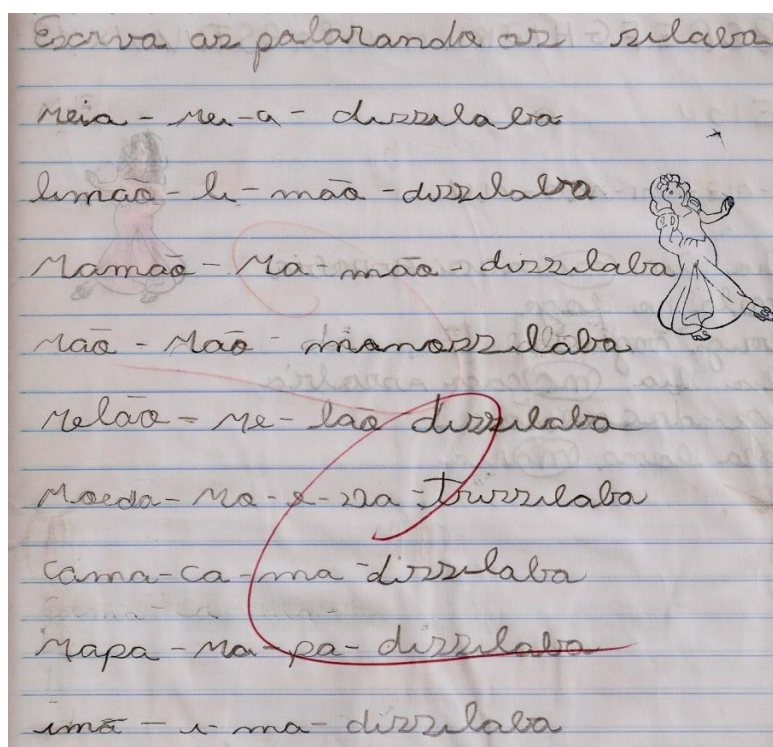 Escriva as palarando as silaba
Meia - Mei-a - dissilaba
limão - li - mão - dissilaba
Mamão - Ma - mão - dissilaba
Mão - Mão - monossilaba
Melão - Me - lão dissilaba
Moeda - Mo - e - da - Trissilaba
Cama - Ca - ma - dissilaba
Mapa - Ma - pa - dissilaba
imã - i - ma - dissilaba